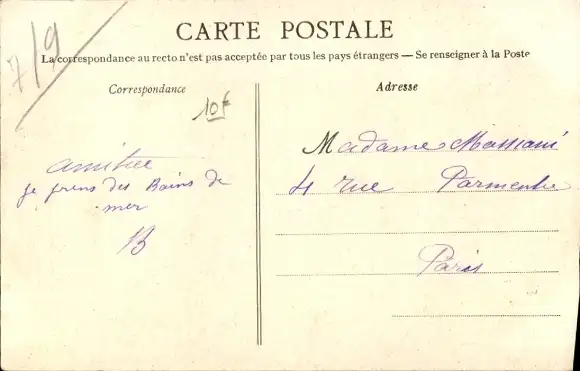 7/9
CARTE POSTALE
La correspondance au recto n'est pas acceptée par tous les pays étrangers — Se renseigner à la Poste
Correspondance
Adresse
10f
amitiee
je prens des Bains de
mer
B
Madame Massiani
4 rue Parmentier
Paris